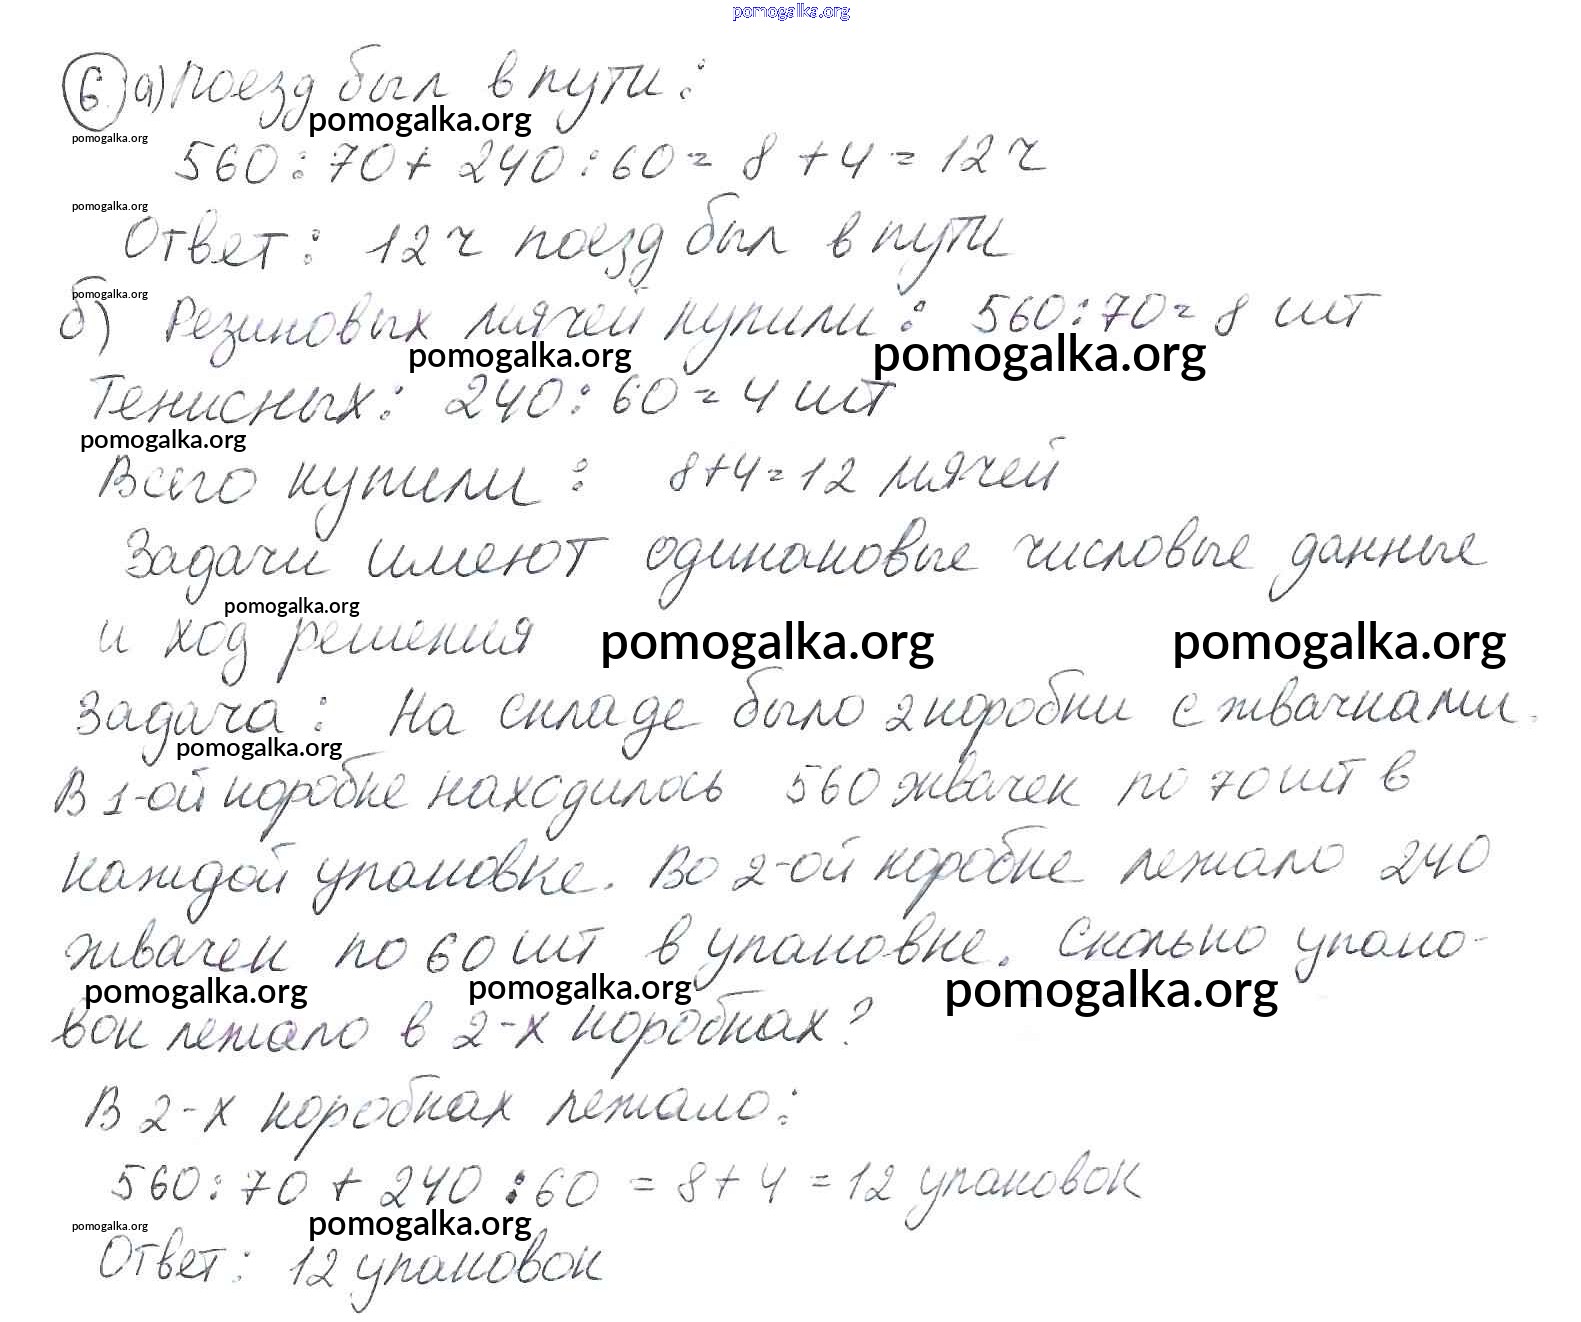 pomogalka.org
6 а) Поезд был в пути:
pomogalka.org
pomogalka.org
560:70+240:60=8+4=12ч
pomogalka.org
Ответ: 12ч поезд был в пути
pomogalka.org
б) Резиновых мячей купили: 560:70=8 шт
pomogalka.org pomogalka.org
Тенисных: 240:60=4 шт
pomogalka.org
Всего купили: 8+4=12 мячей
Задачи имеют одинаковые числовые данные
pomogalka.org
и ход решения
pomogalka.org pomogalka.org
Задача: На складе было 2 коробки с жвачками.
pomogalka.org
В 1-ой коробке находилось 560 жвачек по 70 шт в
каждой упаковке. Во 2-ой коробке лежало 240
жвачек по 60 шт в упаковке. Сколько упако-
pomogalka.org pomogalka.org pomogalka.org
вок лежало в 2-х коробках?
В 2-х коробках лежало:
560:70+240:60=8+4=12 упаковок
pomogalka.org pomogalka.org
Ответ: 12 упаковок